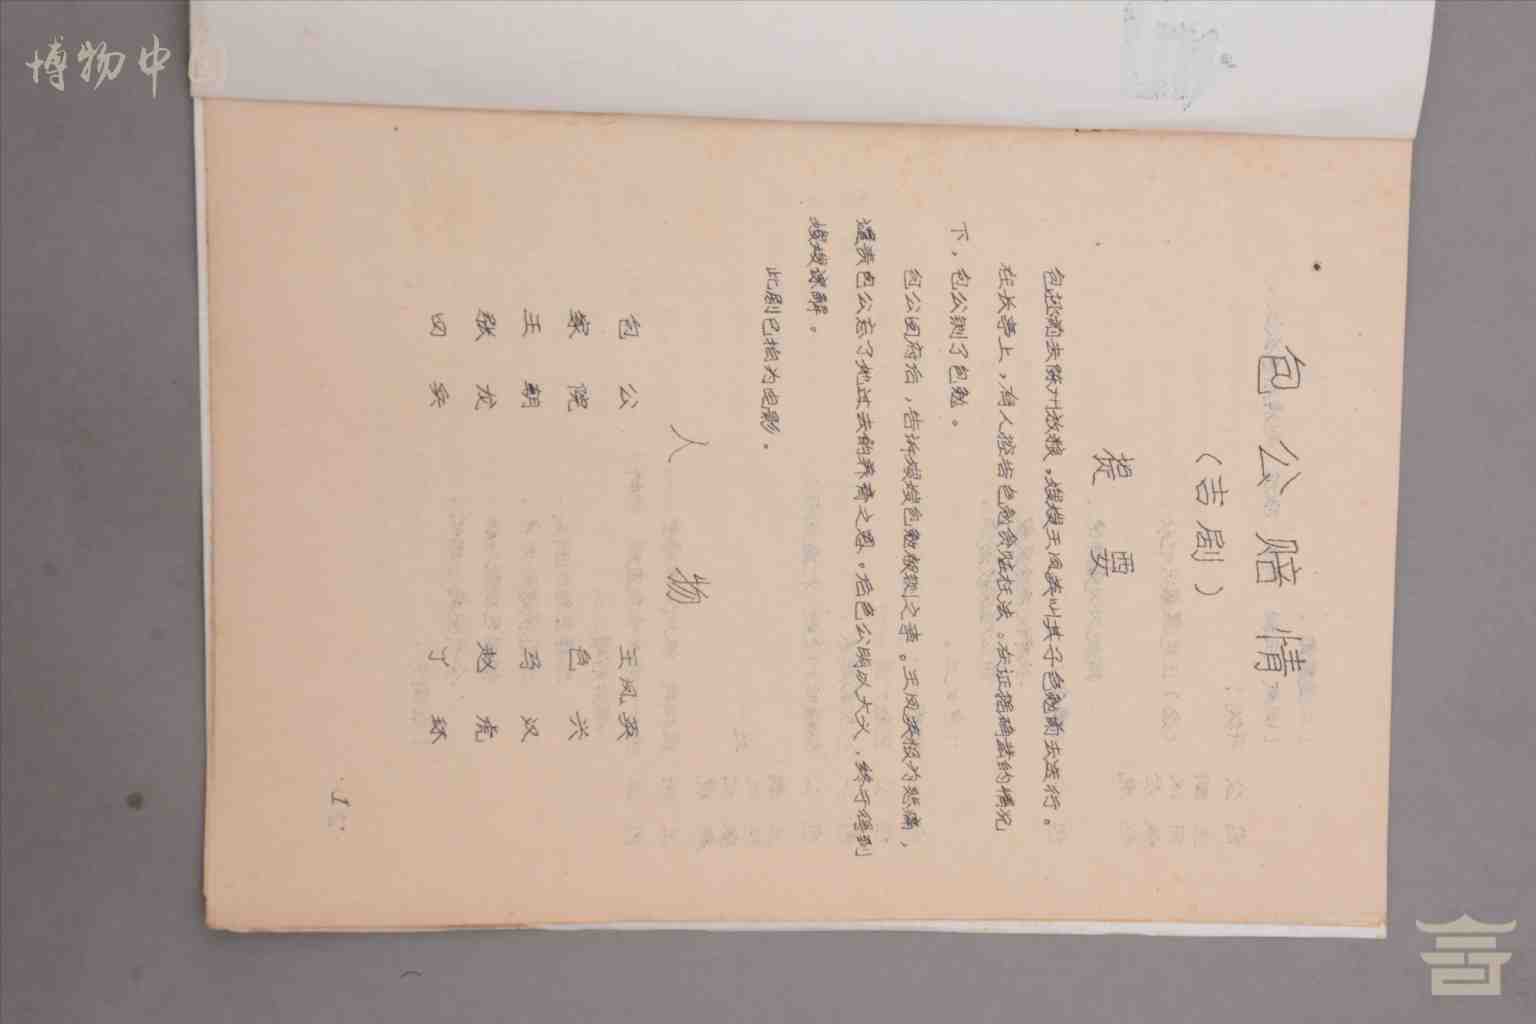 博物中国
包公赔情
（吉剧）
提要
包拯前去陈州放粮，嫂嫂王凤英叫其子包勉前去送行。
在长亭上，有人控告包勉贪赃枉法。在证据确凿的情况
下，包公铡了包勉。
包公回府后，告诉嫂嫂包勉被铡之事。王凤英极为悲痛，
谴责包公忘了她过去的养育之恩。后包公晓以大义，终于得到
嫂嫂谅解。
此剧已拍为电影。
人物
包公 王凤英
家院 包兴
王朝 马汉
张龙 赵虎
四 丫环
·1